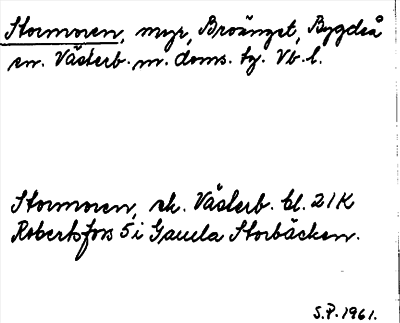 Stormoren, myr, Broänget, Bygdeå
sn. Västerb. n. doms. tg. Vb. l.
Stormoren, ek. Västerb. bl. 21K
Robertsfors 5 i Gamla Storbäcken.
S.P. 1961.